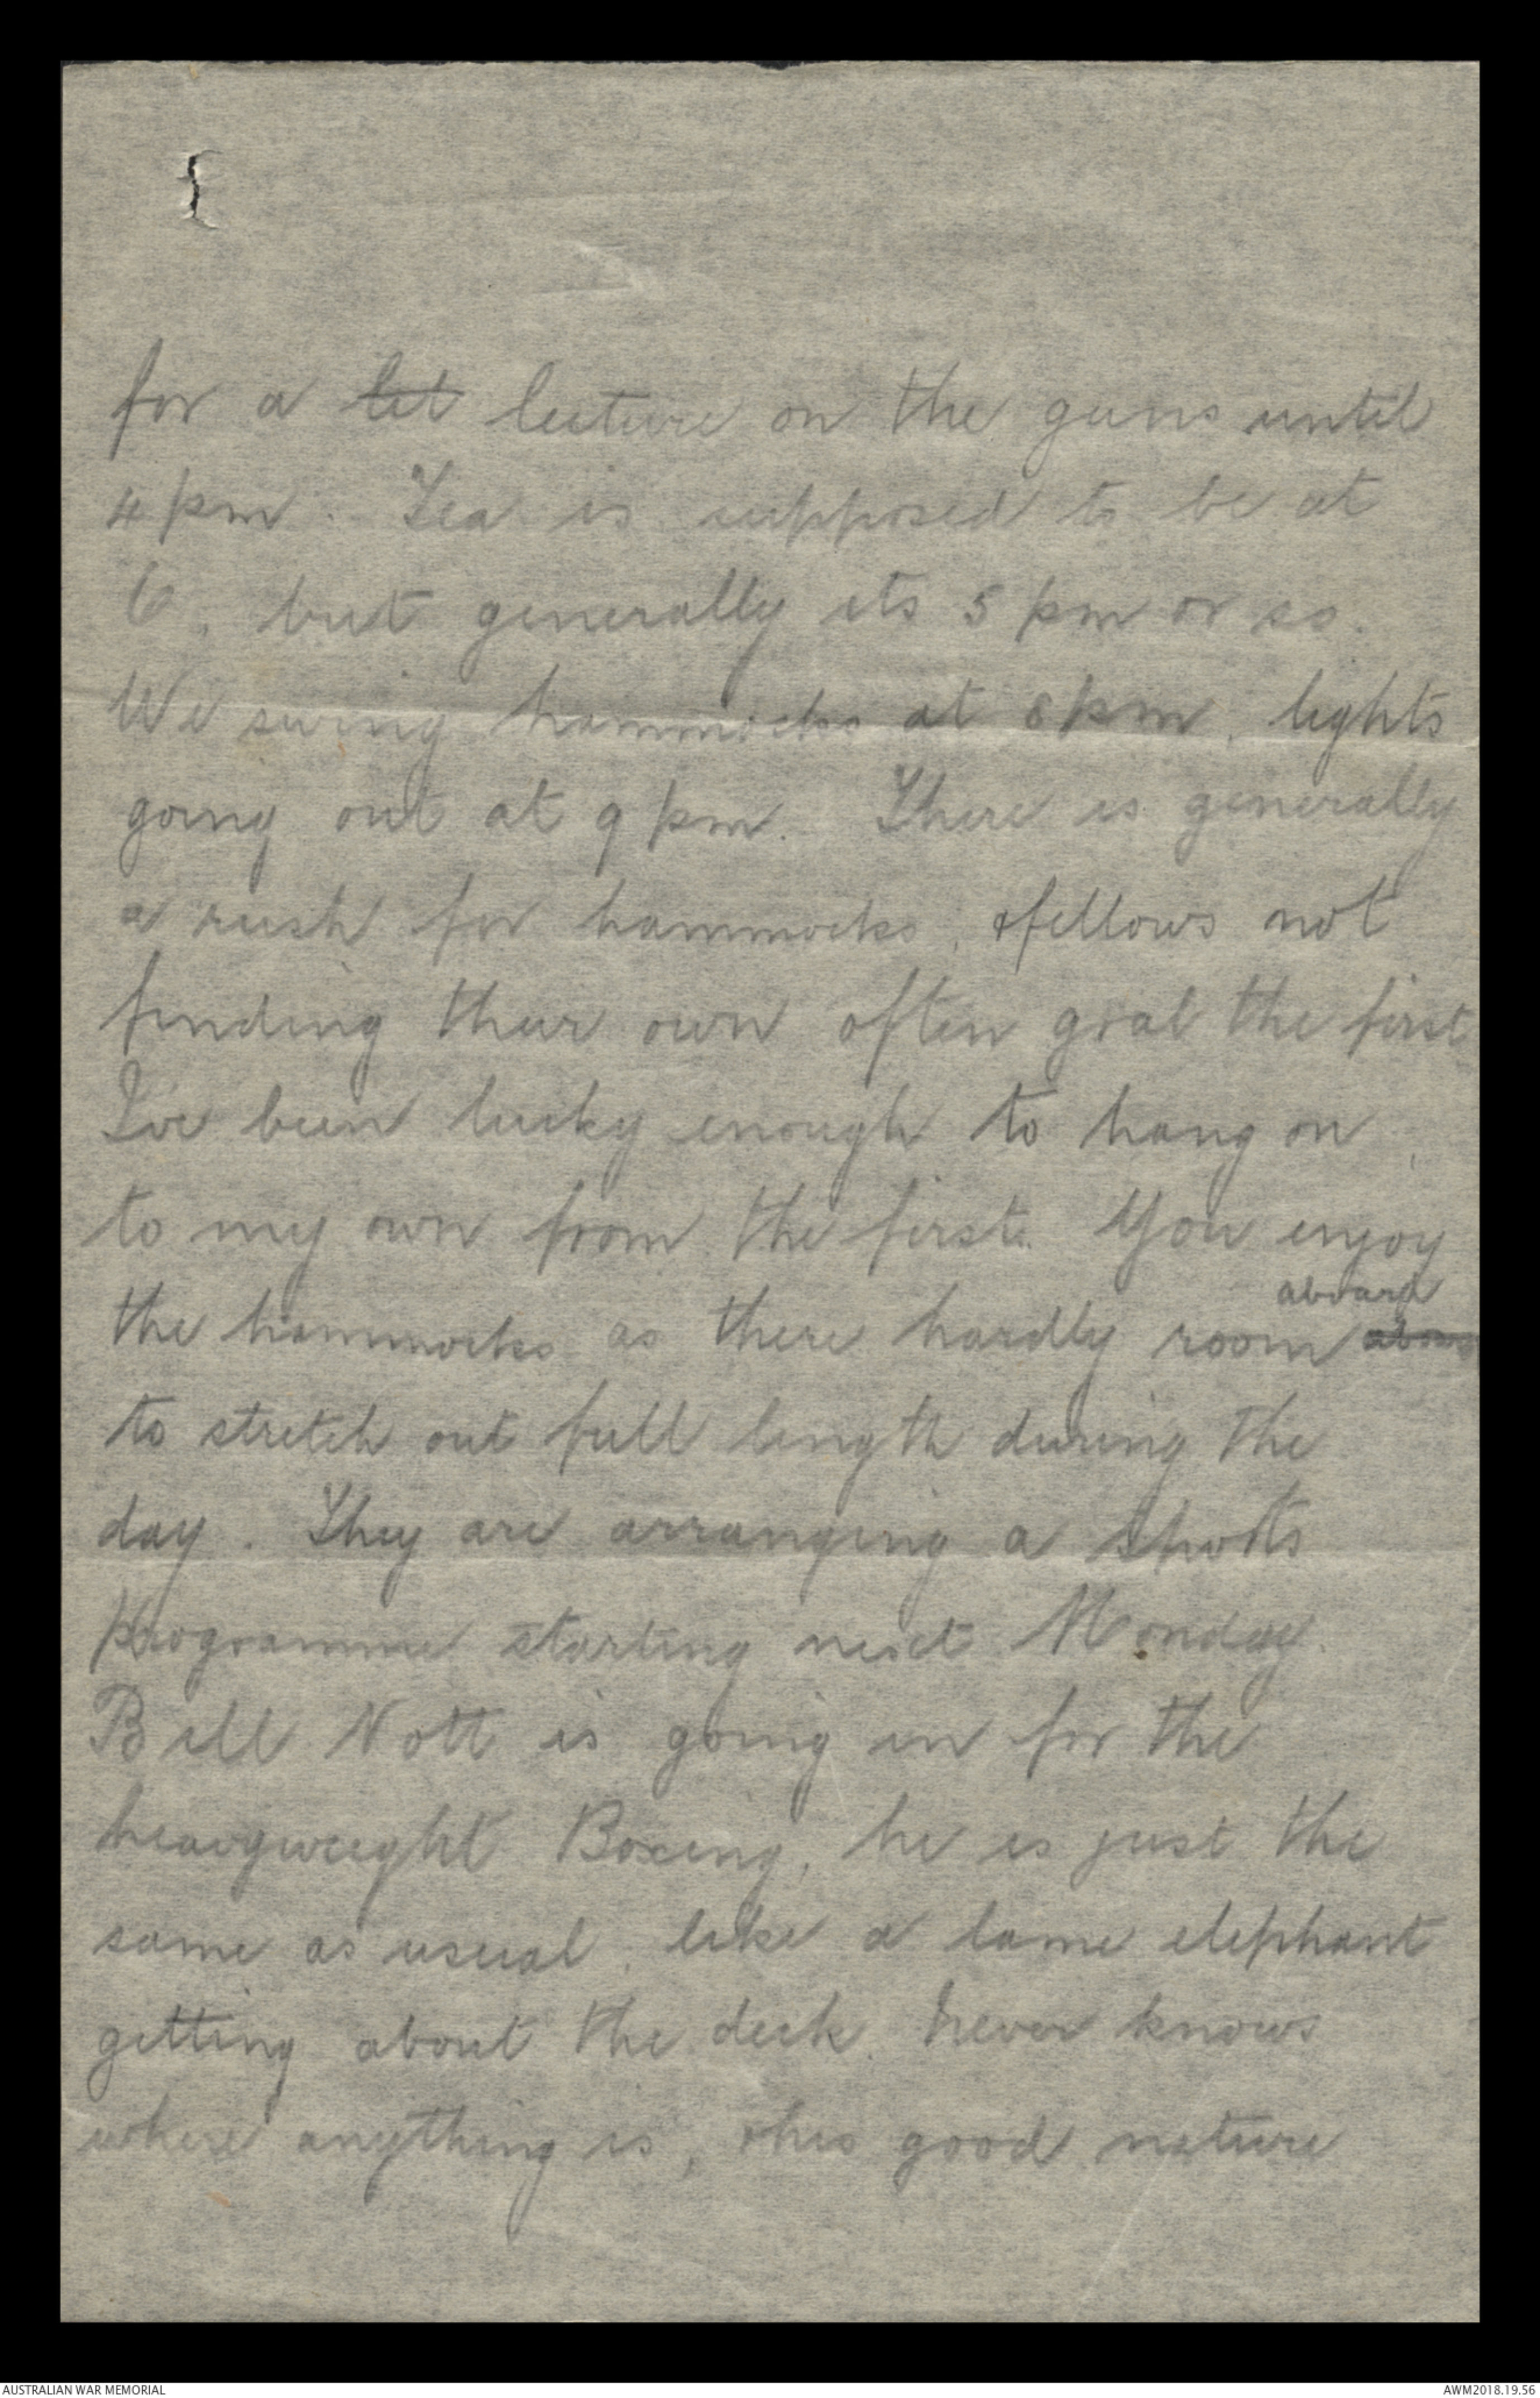 for a let lecture on the guns until
4 pm. Tea is supposed to be at
6, but generally its 5 pm or so.
We swing hammocks at 6 pm, lights
going out at 9 pm. There is generally
a rush for hammocks, & fellows not
finding their own often goal the first
I've been lucky enough to hang on
to my own from the first. You enjoy
aboard
the hammocks as there hardly room
to stretch out full length during the
day. They are arranging a sports
programme starting next Monday.
Bill Nott is going in for the
heavyweight Boxing, he is just the
same as usual, like a lame elephant
getting about the deck. Never knows
where anything is, & his good nature
AUSTRALIAN WAR MEMORIAL
AWM2018.19.56